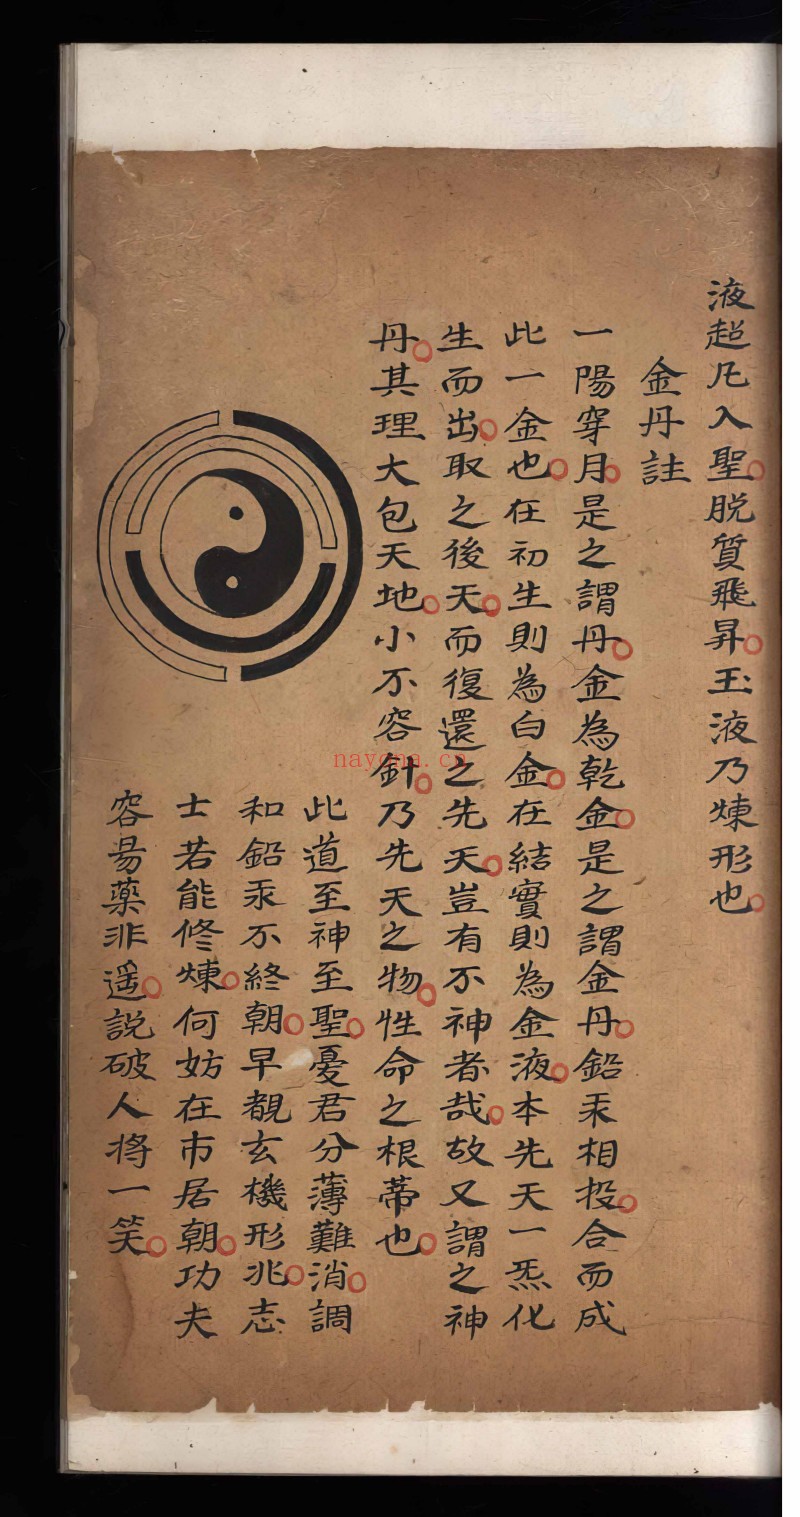 液超凡入聖脱質飛昇玉液乃煉形也
金丹註
一陽穿月是之謂丹金為乾金是之謂金丹鉛汞相投合而成
此一金也在初生則為白金在結實則為金液本先天一炁化
生而出取之後天而復還之先天豈有不神者哉故又謂之神
丹其理大包天地小不容針乃先天之物性命之根蒂也
此道至神至聖憂君分薄難消調
和鉛汞不終朝早覩玄機形兆志
士若能修煉何妨在市居朝功夫
容昜藥非遥説破人将一笑
nayona.cn